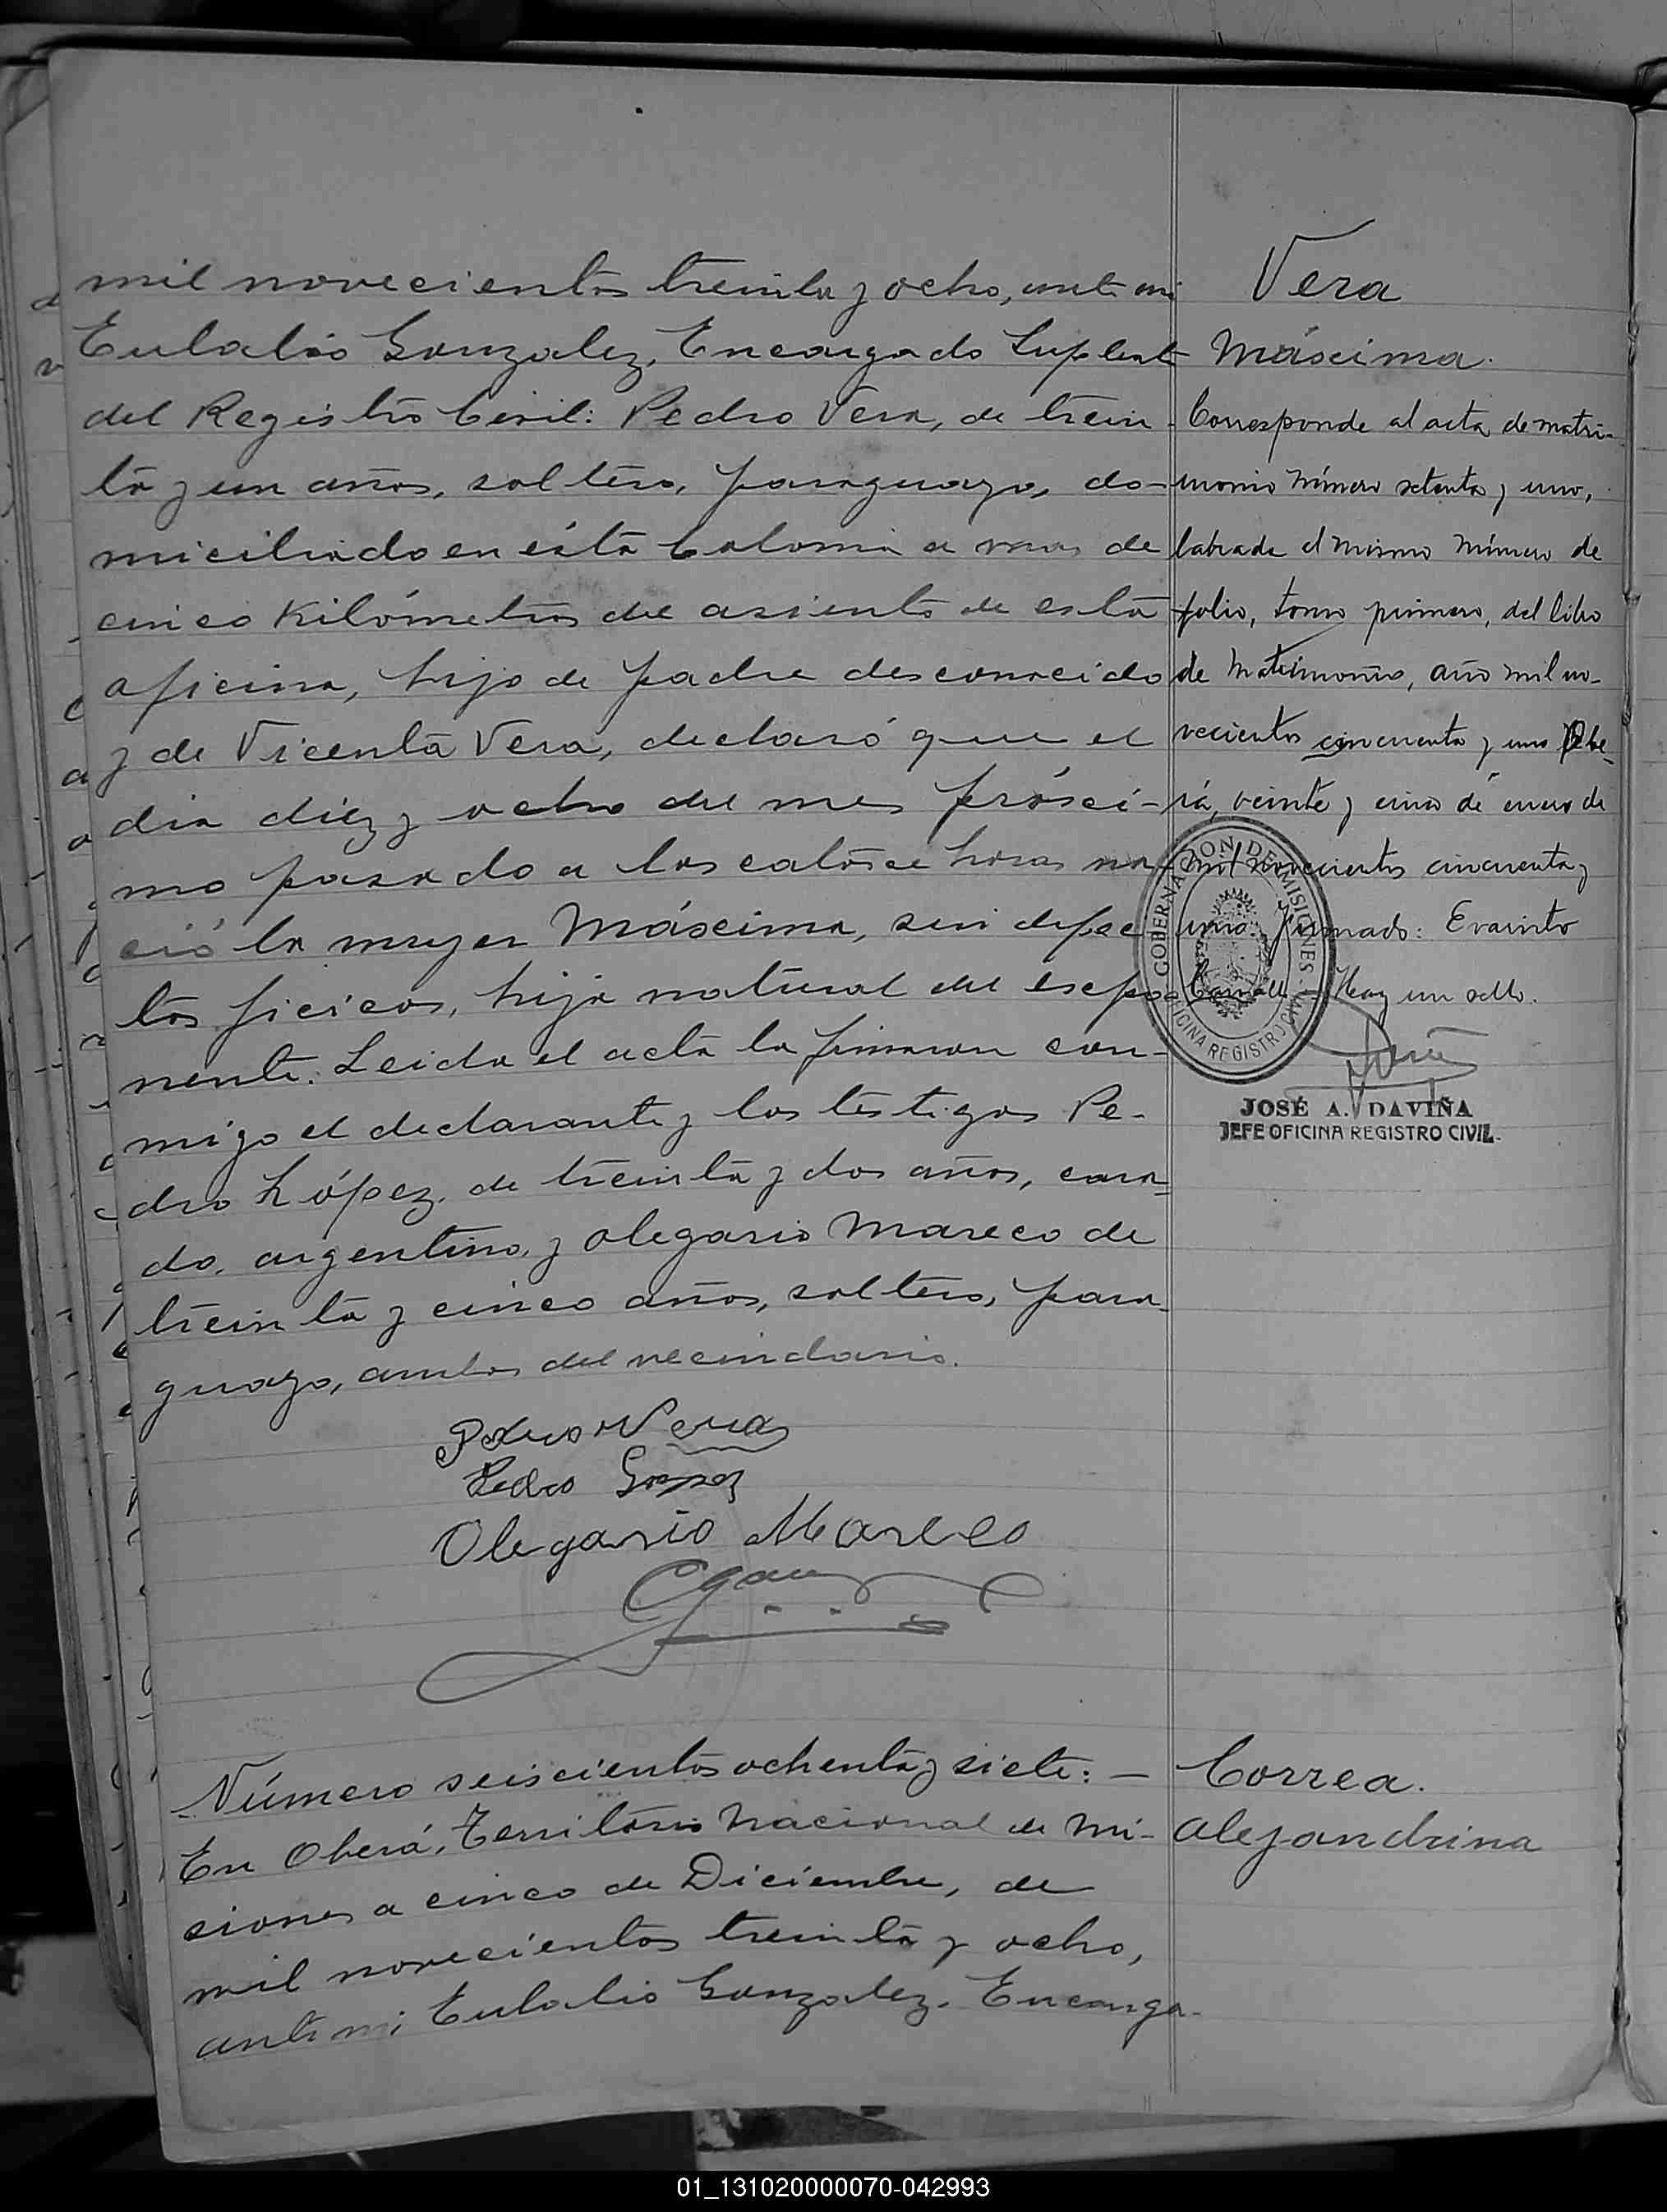 mil novecientos treinta y ocho, ante mi
Eulalio Gonzalez, Encargado Suplente
del Registro Civil: Pedro Vera, de trein-
ta y un años, soltero, paraguayo, do-
miciliado en ésta Colonia a mas de
cinco Kilómetros del asiento de esta
oficina, hijo de padre desconocido
y de Vicenta Vera, declaró que el
dia diez y ocho del mes próxi-
mo pasado a las catorce horas na-
ció la mujer Máxima, sin defec
tos ficicos, hija natural del expo
nente. Leida el acta la firmaron con-
migo el declarante y los testigos Pe-
dro López, de treinta y dos años, casa-
do, argentino, y Olegario Mareco de
treinta y cinco años, soltero, para-
guayo, ambos del vecindario.
Pedro Vera
Pedro
Olegario Mareco
Vera
Máxima.
Corresponde al acta de matri-
monio número setenta y uno,
labrada el mismo número de
folio, tomo primero, del libro
de Matrimonio, año mil no-
vecientos cincuenta y uno Obe-
rá, veinte y cinco de enero de
mil novecientos cincuenta y
uno. Firmado: Evaristo
Hay un sello.
GOBERNACION DE MISIONES
OFICINA REGISTRO CIVIL
JOSÉ A. DAVIÑA
JEFE OFICINA REGISTRO CIVIL.
Número seiscientos ochenta y siete: —
En Oberá, Territorio Nacional de Mi-
siones a cinco de Diciembre, de
mil novecientos treinta y ocho,
ante mi Eulalio Gonzalez, Encarga-
Correa.
Alejandrina
01_131020000070-042993